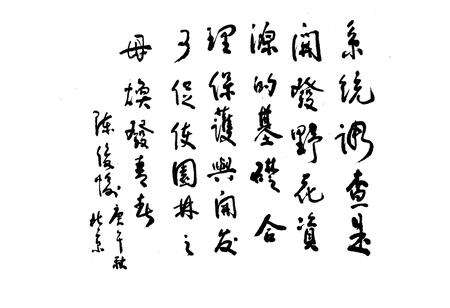 系统调查是
開發野花資
源的基礎合
理保護與開发
可促使園林之
母煥發青春
陈俊愉
庚午秋
北京